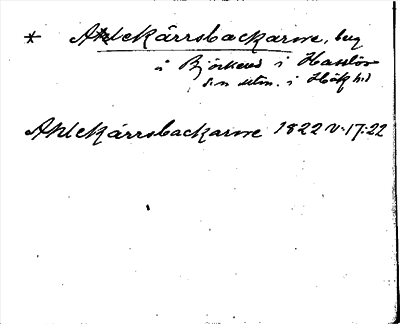 * Ahlekärrsbackarne, berg
i Björkered i Hasslöv
s:n utm. i Hök hd
Ahlekärrsbackarne 1822 V:17:22